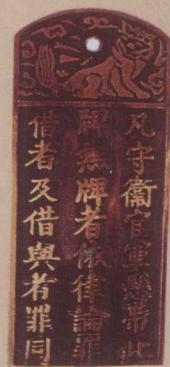 凡守衛官軍懸帶此
牌無牌者依律論罪
借者及借與者罪同